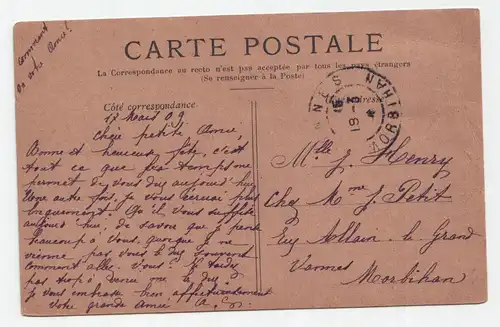 comment
va votre Amie?
CARTE POSTALE
La Correspondance au recto n'est pas acceptée par tous les pays étrangers
(Se renseigner à la Poste)
Côté correspondance
Adresse
17 Mars 09
Chère petite Amie,
Bonne et heureuse fête, c'est
tout ce que le temps me
permet de vous dire aujourd'hui
Une autre fois, je vous plus
longuement. Qu'il vous suffise
aujourd'hui, de savoir que je pense
beaucoup à vous, quoique je ne
vienne pas vous le dire souvent
comment allez-vous? Ne tardez
pas trop à venir me le dire
je vous embrasse bien affectueusement
Votre grande amie
VANNES
MORBIHAN
18 -3
Mlle J. Henry
Chez Mme J. Petit
Rue Allain le Grand
Vannes
Morbihan